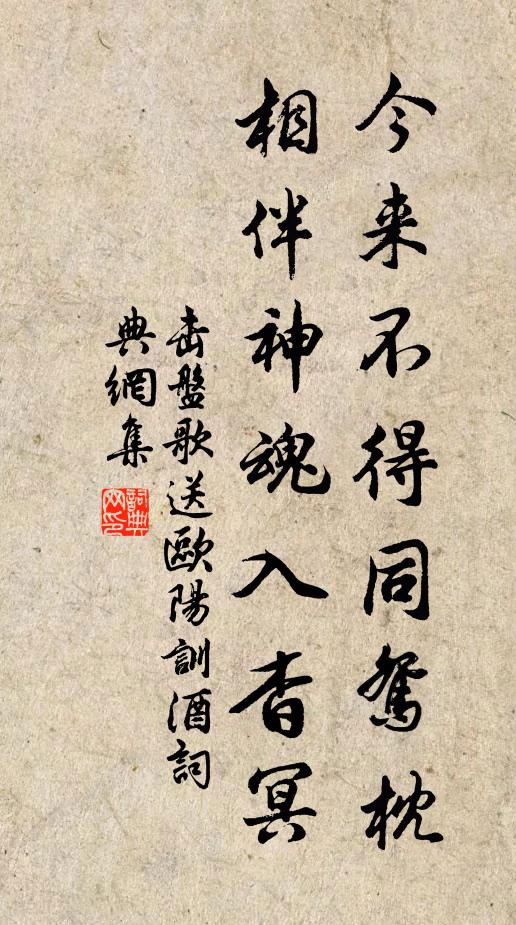 今来不得同鴛枕
相伴神魂入杳冥
击盤歌送歐陽訓酒詞
典網集
詞典网印